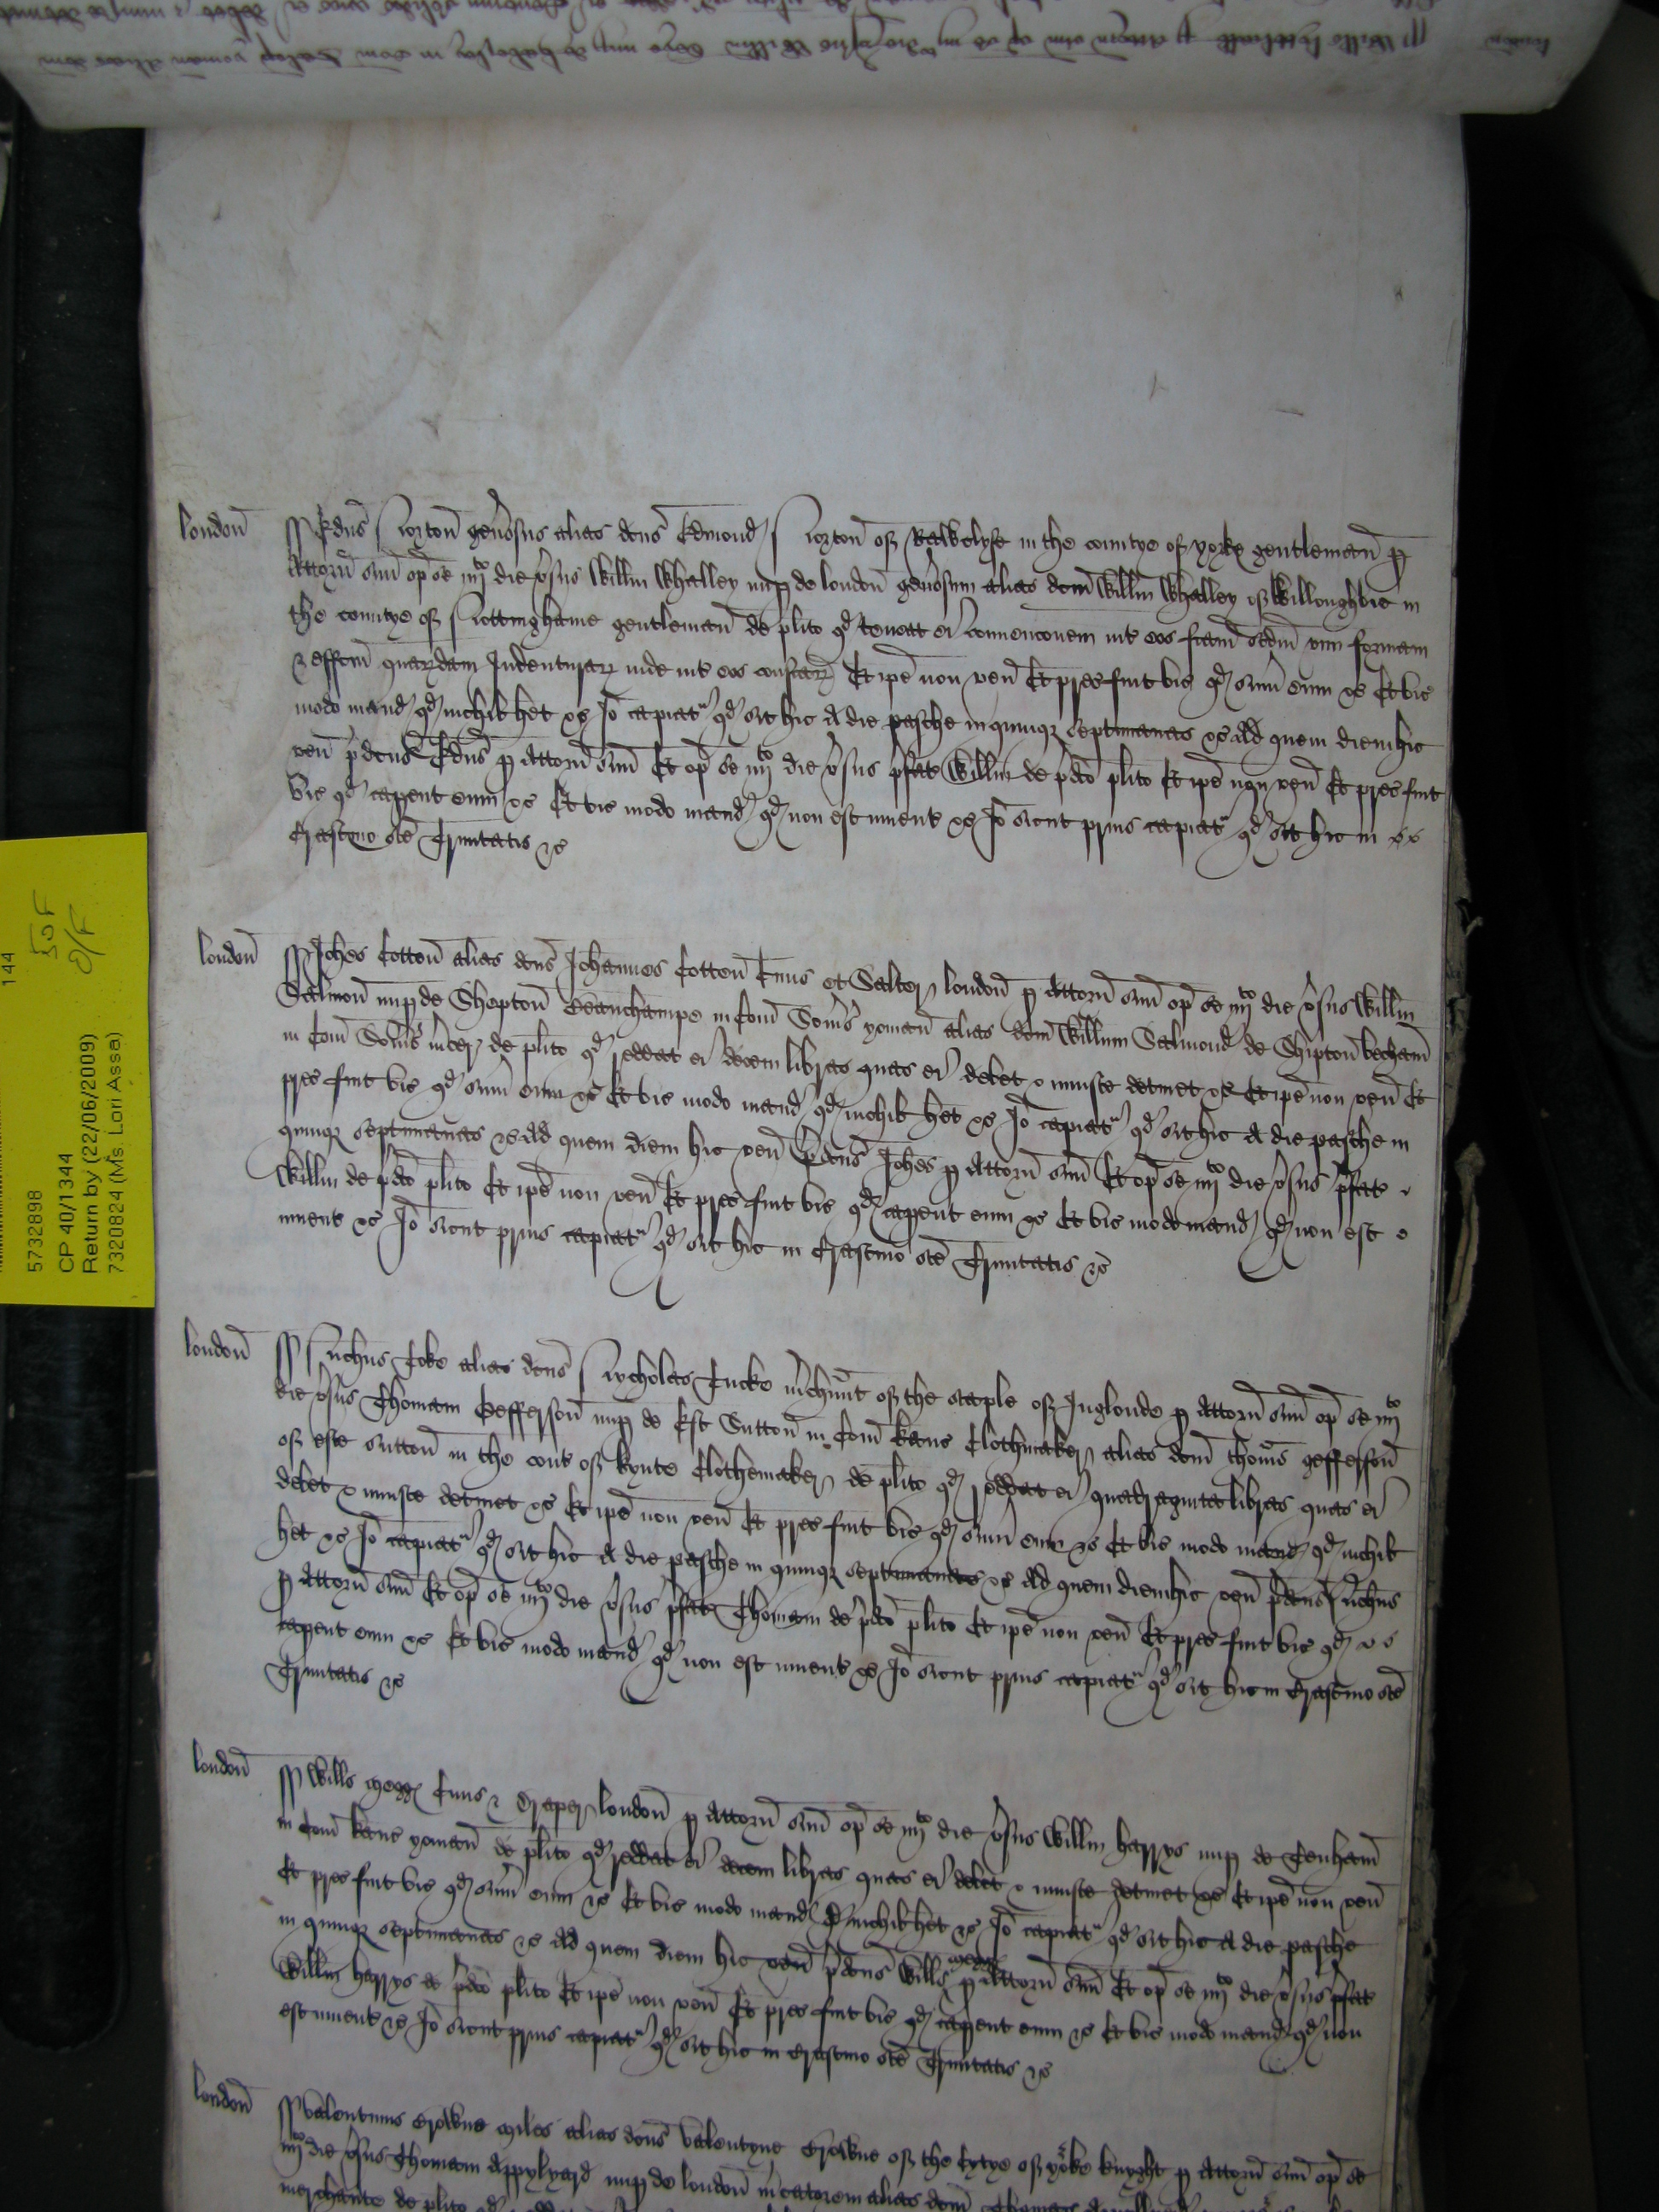 londoñ Edus Norton gen̄osus alias dc̄us Edmond Norton of Rawclyfe in the countye of yorke gentleman p
Attorn̄ suū op̄ se iiijto die v̄sus Willm Whalley nup de londoñ gen̄osum alias dc̄m Willm Whalley of Willoughbie in
the countye of Nottinghame gentleman de plito qd teneat ei convenconem int eos fcam scdm vim formam
& effcm quarzdam Indenturarz inde int eos confcarz Et ipe non ven̄ Et prec fuit vic qd sum̄ eum &c Et vic
modo mand qd nichil het &c Io capiatr qd sit hic A die pasche in quinqz septimanas &c Ad quem diem hic
ven̄ p̄dcus Edus p Attorn̄ suū Et op̄ se iiijto die v̄sus p̄fat Willm de p̄dco plito Et ipe non ven̄ Et prec fuit
vic qd capent eum &c Et vic modo mand qd non est invent &c Io sicut prius capiatr qd sit hic in
Crastino sce Trinitatis &c
londoñ Johes Cotton alias dc̄us Johannes Cotten Civis et Salter london p Attorn̄ suū op̄ se iiijto die v̄sus Willm
Salmon nup de Shepton Beauchampe in Com̄ Som̄s yoman alias dc̄m Willum Salmond de Shipton becham
in Com̄ Som̄s m̄cer de plito qd reddat ei decem libras quas ei debet & iniuste detinet &c Et ipe non ven̄ Et
prec fuit vic qd sum̄ eum &c Et vic modo mand qd nichil het &c Io capiatr qd sit hic A die pasche in
quinqz septimanas &c Ad quem diem hic ven̄ p̄dcus Johes p Attorn̄ suū Et op̄ se iiijto die v̄sus p̄fat
Willm de p̄dco plito Et ipe non ven̄ Et prec fuit vic qd capent eum &c Et vic modo mand qd non est
invent &c Io sicut prius capiatr qd sit hic in Crastino sce Trinitatis &c
londoñ Nichus Toke alias dc̄us Nycholas Tucke m̄chunt of the staple of Inglonde p Attorn̄ suū op̄ se iiijto
die v̄sus Thomam Gefferson nup de Est Sutton in Com̄ Kanc Clothmaker alias dc̄m thom̄s gefferson
of este sutton in the cont of kynte Clothemaker de plito qd reddat ei quadraginta libras quas ei
debet & iniuste detinet &c Et ipe non ven̄ Et prec fuit vic qd sum̄ eum &c Et vic modo mand qd nichil
het &c Io capiatr qd sit hic A die pasche in quinqz septimanas &c Ad quem diem hic ven̄ p̄dcus Nichus
p Attorn̄ suū Et op̄ se iiijto die v̄sus p̄fat Thomam de p̄dco plito Et ipe non ven̄ Et prec fuit vic qd
capent eum &c Et vic modo mand qd non est invent &c Io sicut prius capiatr qd sit hic in Crastino sce
Trinitatis &c
londoñ Wills Civis & Draper london p Attorn̄ suū op̄ se iiijto die v̄sus Willm harrys nup de Tenham
in Com̄ Kanc yoman de plito qd reddat ei decem libras quas ei debet & iniuste detinet &c Et ipe non ven̄
Et prec fuit vic qd sum̄ eum &c Et vic modo mand qd nichil het &c Io capiatr qd sit hic A die pasche
in quinqz septimanas &c Ad quem diem hic ven̄ p̄dcus Wills p Attorn̄ suū Et op̄ se iiijto die v̄sus p̄fat
Willm harrys de p̄dco plito Et ipe non ven̄ Et prec fuit vic qd capent eum &c Et vic modo mand qd non
est invent &c Io sicut prius capiatr qd sit hic in Crastino sce Trinitatis &c
londoñ Valentinus Browne miles alias dc̄us Valentyne Browne of the Cytye of yorke knyght p Attorn̄ suū op̄ se
iiijto die v̄sus Thomam Appylyard nup de london m̄catorem alias dc̄m Thomas
merchante de plito qd
144
5732898
CP 40/1344
Return by (22/06/2009)
7320824 (Ms. Lori Assa)